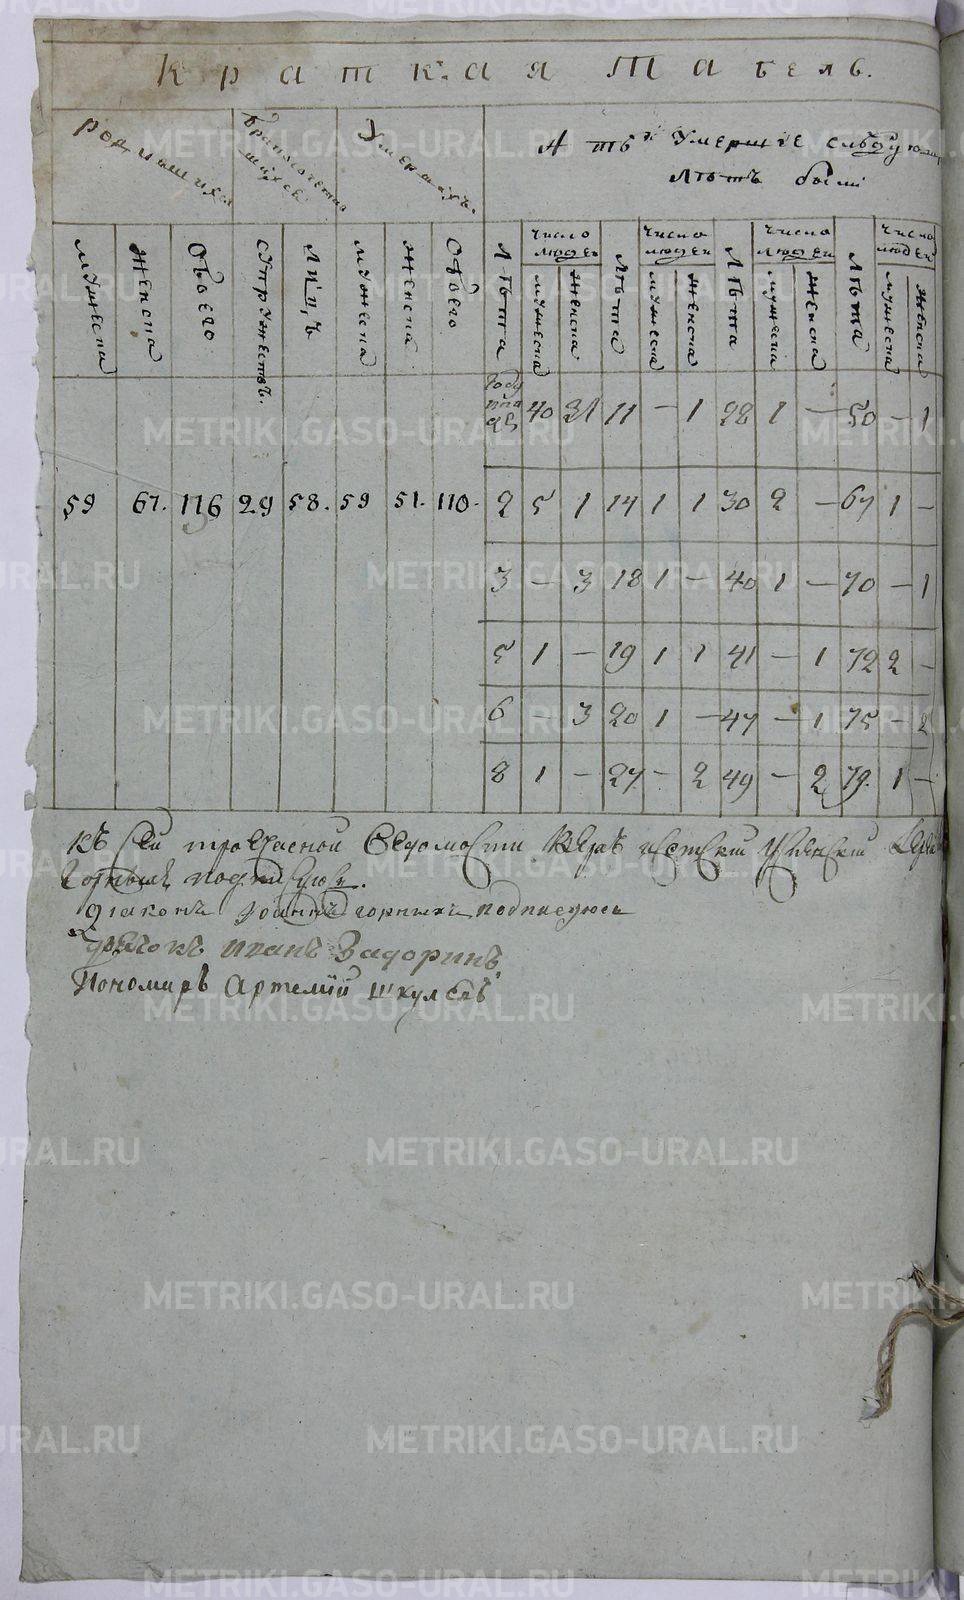 Краткая Табель.
Родившихся
Бракосочетавшихся
Умершихъ.
А тѣ Умершие следующихъ
Лѣтъ были
мужеска
женска
Обоего
супружествъ.
Лицъ
мужеска
женска
Обоего
Лѣта
число людей
мужеска
женска
Лѣта
число людей
мужеска
женска
Лѣта
число людей
мужеска
женска
Лѣта
число людей
мужеска
женска
40 31 11 – 1 28 1 – 50 – 1
59 67. 116 29 58. 59 51. 110. 2 5 1 14 1 1 30 2 – 67 1 –
3 – 3 18 1 – 40 1 – 70 – 1
5 1 – 19 1 1 41 – 1 72 2 –
6 – 3 20 1 – 47 – 1 75 – 2
8 1 – 27 – 2 49 – 2 79. 1 –
Къ сей ведомости
диаконъ Иоаннъ Горныхъ подписуюсь
Дьячокъ Иванъ Задоринъ
Пономарь Артемий
METRIKI.GASO-URAL.RU